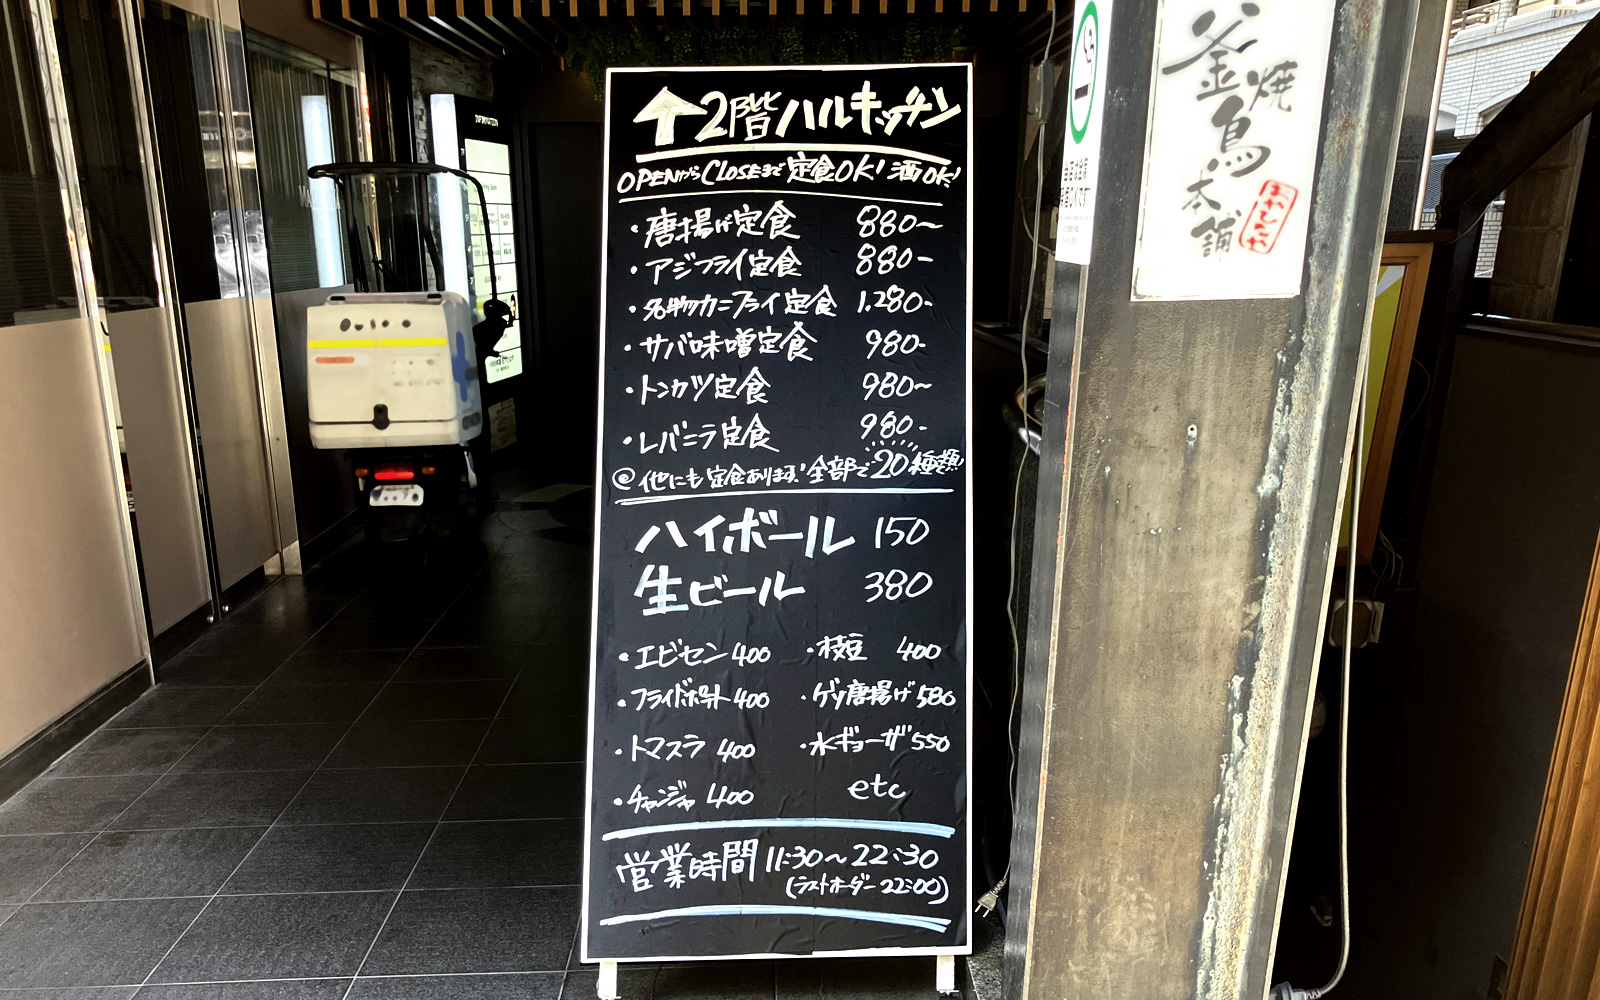 ↑2階ハルキッチン
OPENからCLOSEまで定食OK!酒OK!
・唐揚げ定食 880〜
・アジフライ定食 880-
・名物カニフライ定食 1.280-
・サバ味噌定食 980-
・トンカツ定食 980〜
・レバニラ定食 980-
@他にも定食あります!全部で20種類!
ハイボール 150
生ビール 380
・エビセン 400 ・枝豆 400
・フライドポテト 400 ・ゲソ唐揚げ 580
・トマスラ 400 ・水ギョーザ 550
・チャンジャ 400 etc
営業時間 11:30〜22:30
(ラストオーダー 22:00)
INFORMATION
釜焼鳥本舗
おやひなや